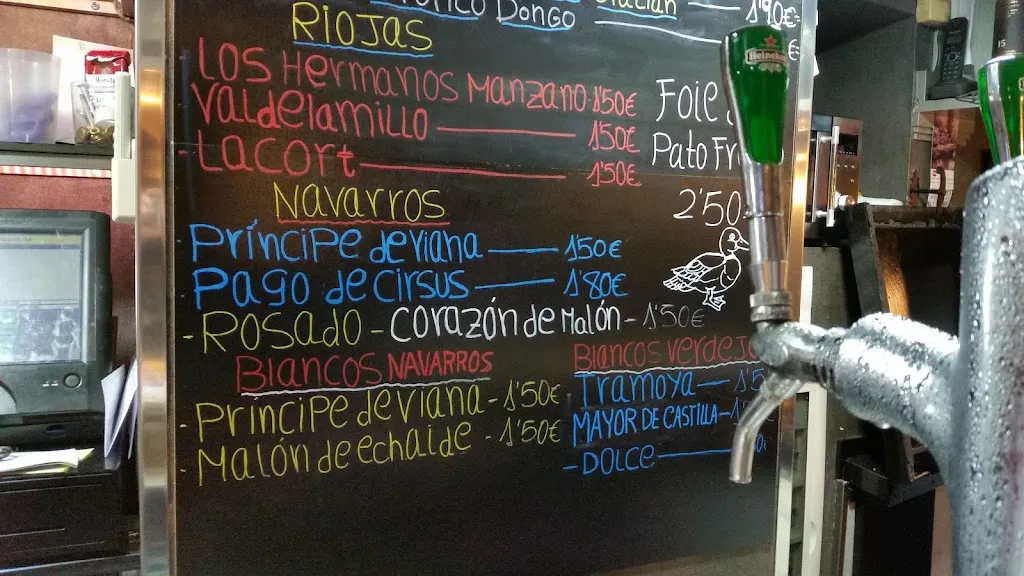 Dongo
1'90€
RIOJAS
€
Los Hermanos Manzano 1'50€
Valdelamillo 1'50€
- Lacort 1'50€
Foie
Pato
2'50
Heineken
NAVARROS
- Príncipe de viana 1'50€
- Pago de cirsus 1'80€
- ROSADO - Corazón de Malón - 1'50€
Blancos NAVARROS
Príncipe de viana - 1'50€
Malón de echaide - 1'50€
Blancos verdejo
Tramoya - 1'5
MAYOR DE CASTILLA - 1'
- DOLCE